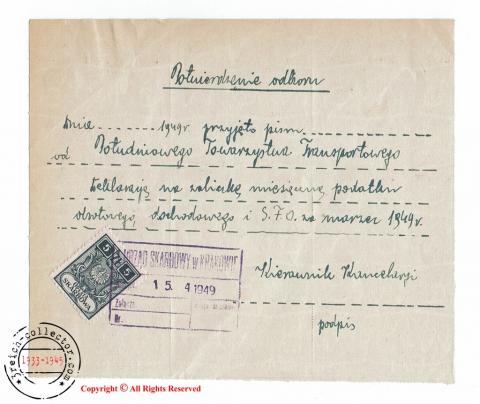 Potwierdzenie odbioru
Dnia ........ 1949r. przyjęto pismo
od Południowego Towarzystwa Transportowego
Deklarację na zaliczkę miesięczną podatku
obrotowego, dochodowego i S.F.O. za marzec 1949r.
Kierownik Kancelarji
podpis
URZĄD SKARBOWY w KRAKOWIE
15. 4 1949
Załącz.
Nr.
5 ZŁ 5
SKARBOWA
3reich-collector.com
1933-1945
Copyright © All Rights Reserved